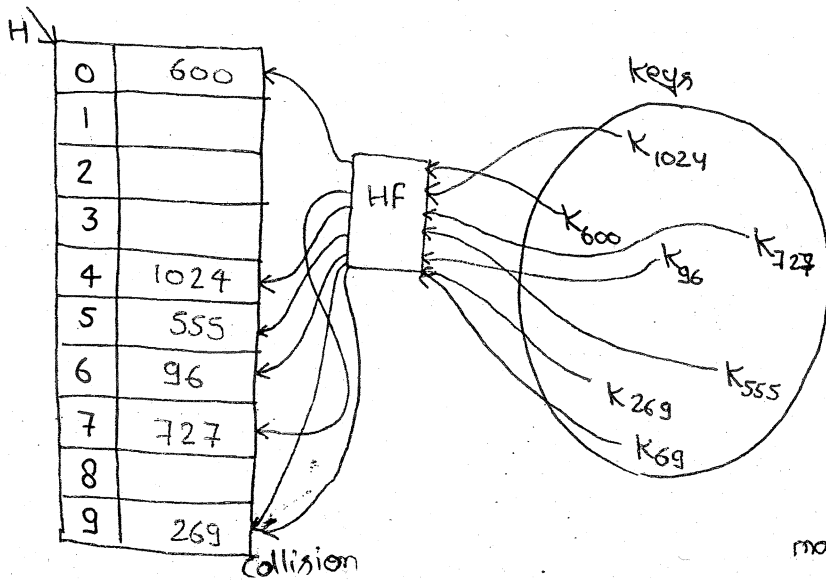 H
0 600
1
2
3
4 1024
5 555
6 96
7 727
8
9 269
Collision
HF
keys
K1024
K600
K727
K96
K555
K269
K69